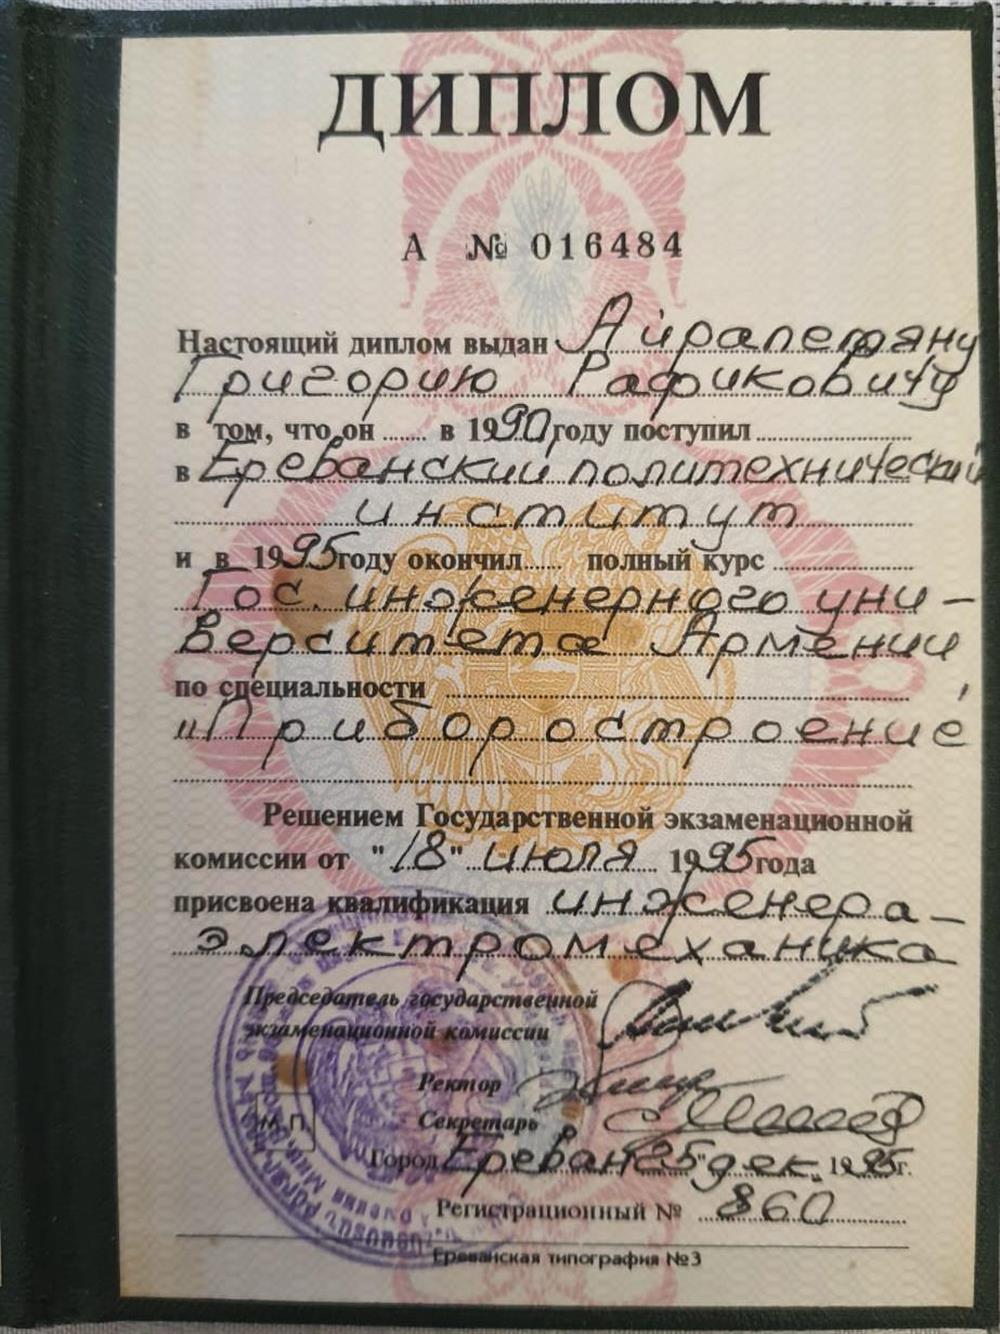 ДИПЛОМ
А № 016484
Настоящий диплом выдан Айрапетяну
Григорию Рафиковичу
в том, что он ...... в 1990 году поступил
в Ереванский политехнический
институт
и в 1995 году окончил ...... полный курс
Гос. инженерного уни-
верситета Армении
по специальности
"Приборостроение"
Решением Государственной экзаменационной
комиссии от "18" июля 1995 года
присвоена квалификация инженера-
электромеханика
Председатель государственной
экзаменационной комиссии
Ректор
Секретарь
М П
Город Ереван "25" дек. 1995 г.
Регистрационный № 860
Ереванская типография №3